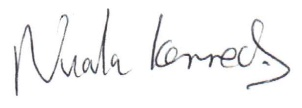 Nuala Kennedy